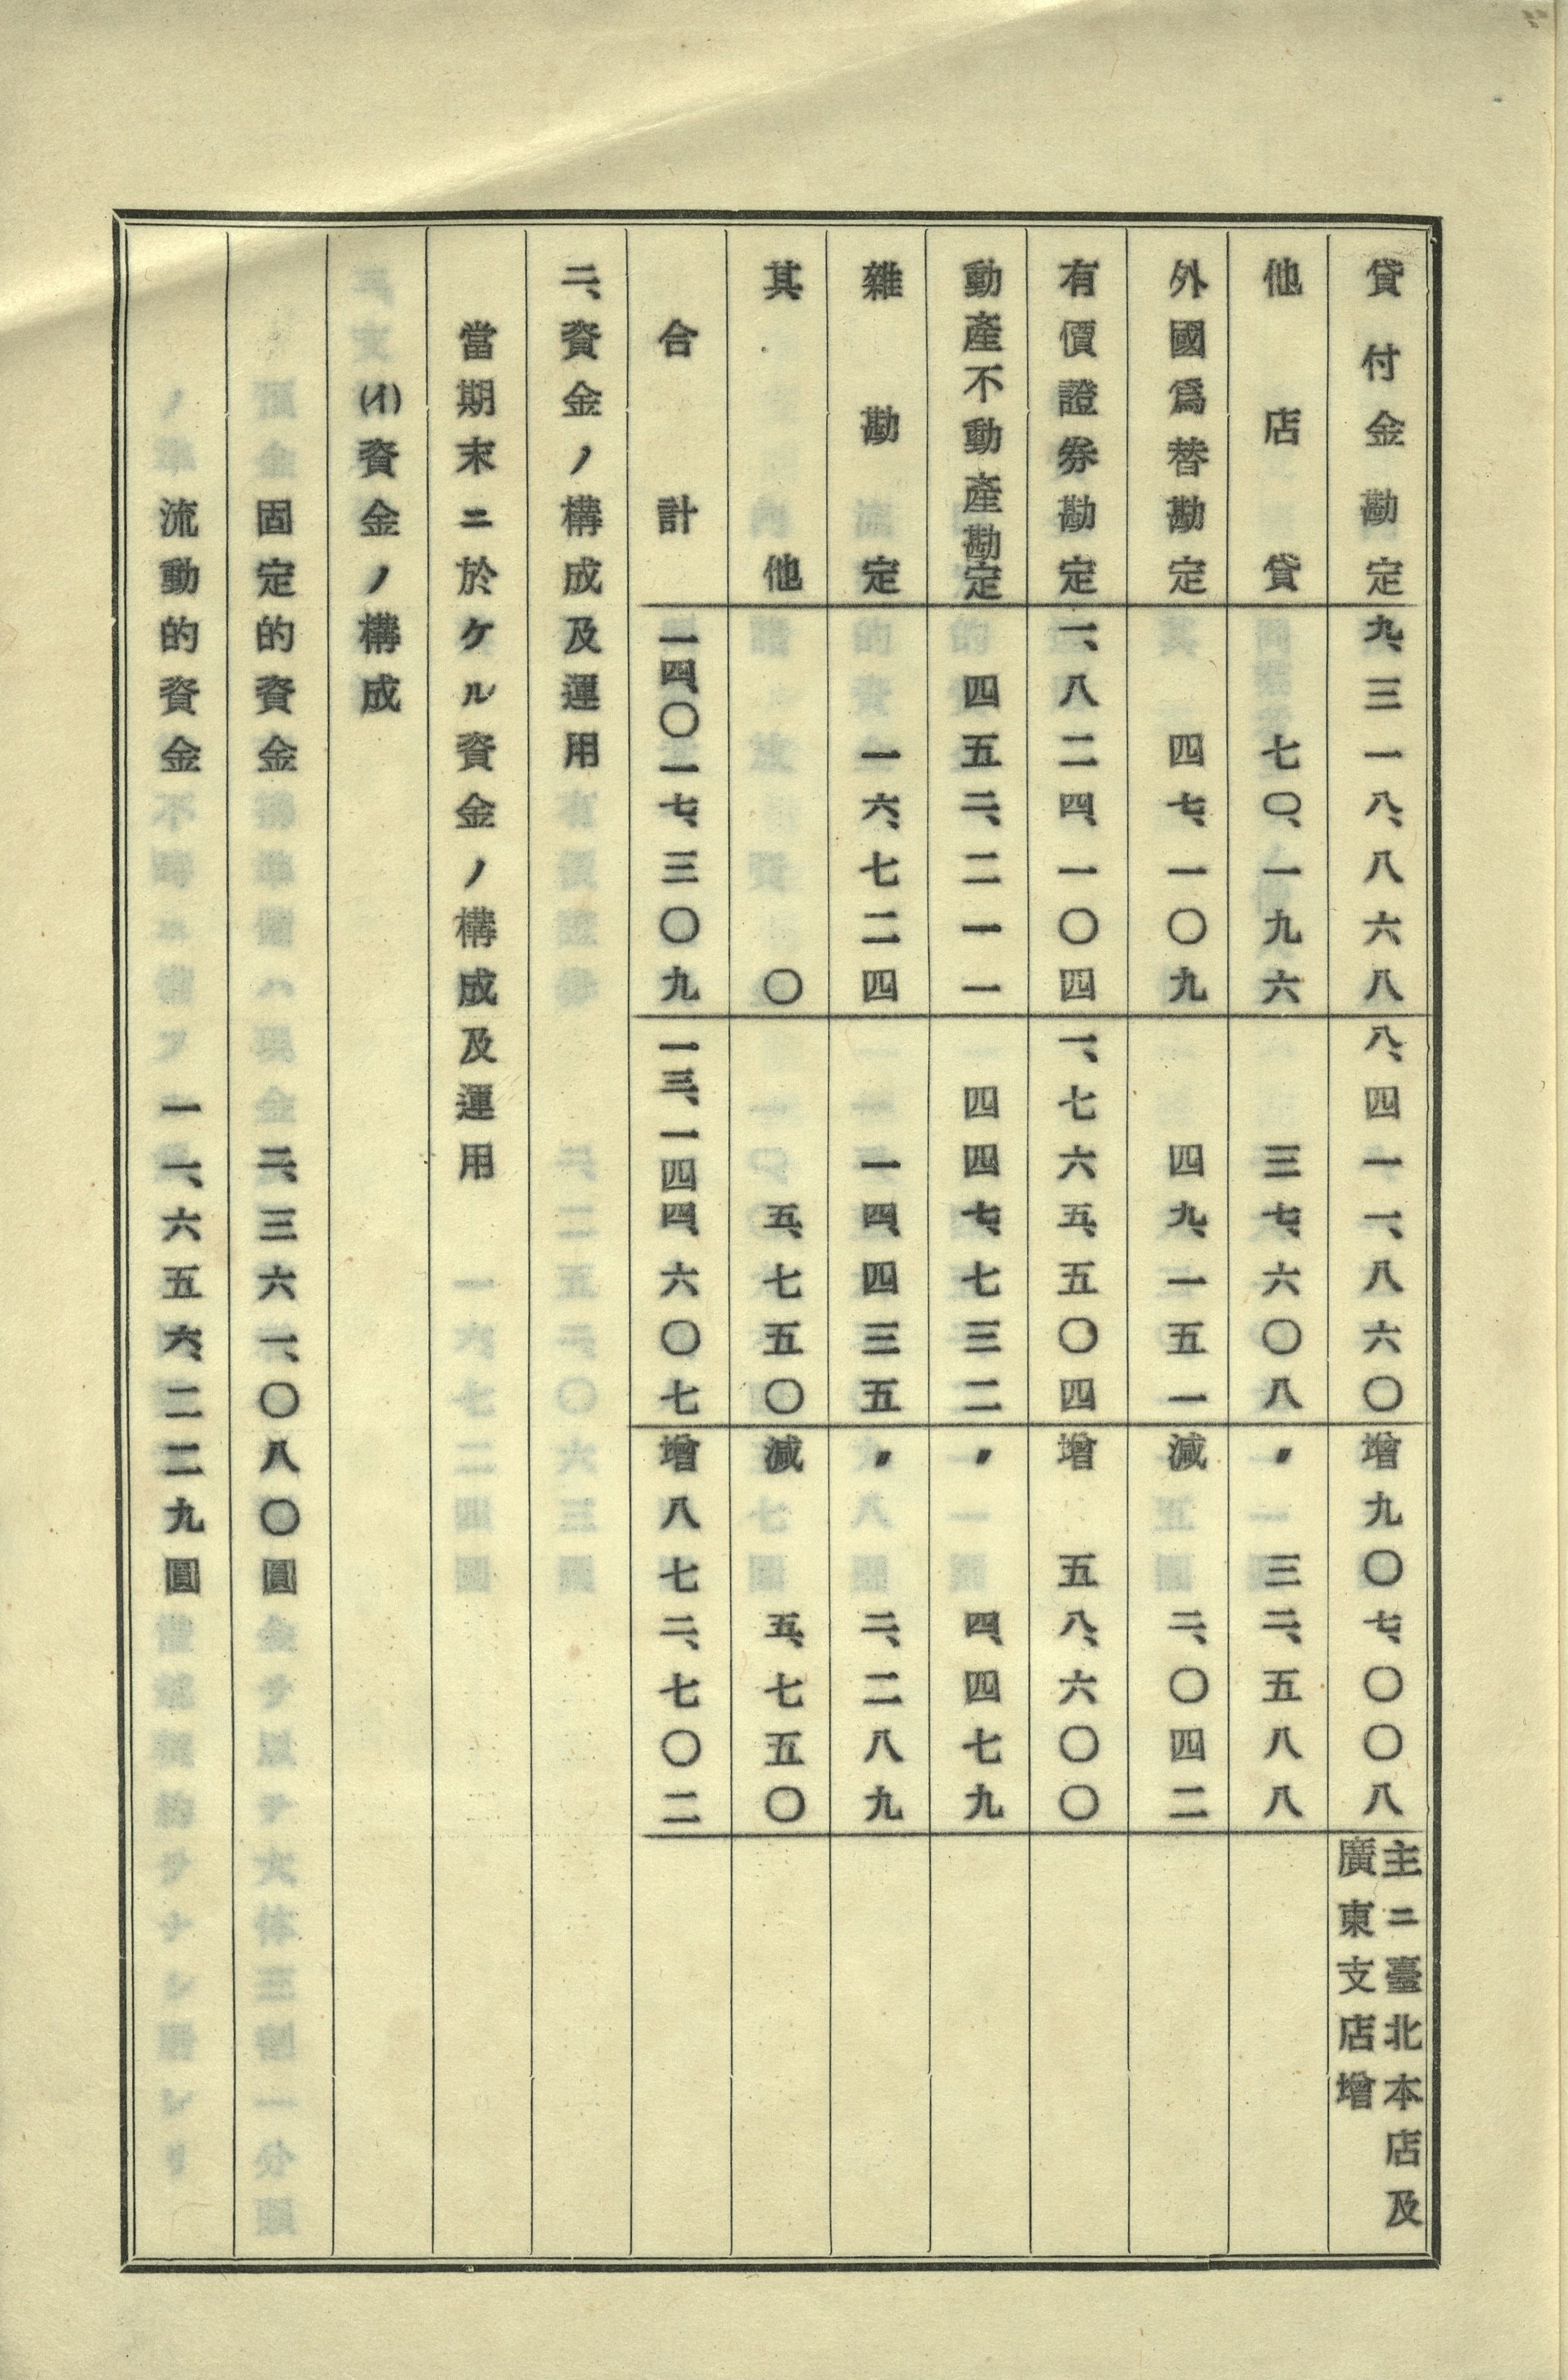 貸付金勘定 九、三一八、八六八 八、四一一、八六〇 增九〇七、〇〇八 主ニ臺北本店及
廣東支店增
他店貸 七〇、一九六 三七、六〇八 〃三二、五八八
外國爲替勘定 四七、一〇九 四九、一五一 減二、〇四二
有價證券勘定 一、八二四、一〇四 一、七六五、五〇四 增五八、六〇〇
動產不動產勘定 四五二、二一一 四四七、七三二 〃四、四七九
雜勘定 一六、七二四 一四、四三五 〃二、二八九
其他 〇 五、七五〇 減五、七五〇
合計 一四、〇一七、三〇九 一三、一四四、六〇七 增八七二、七〇二
二、資金ノ構成及運用
當期末ニ於ケル資金ノ構成及運用
(イ)資金ノ構成
固定的資金 二、三六一、〇八〇圓
流動的資金 一一、六五六、二二九圓